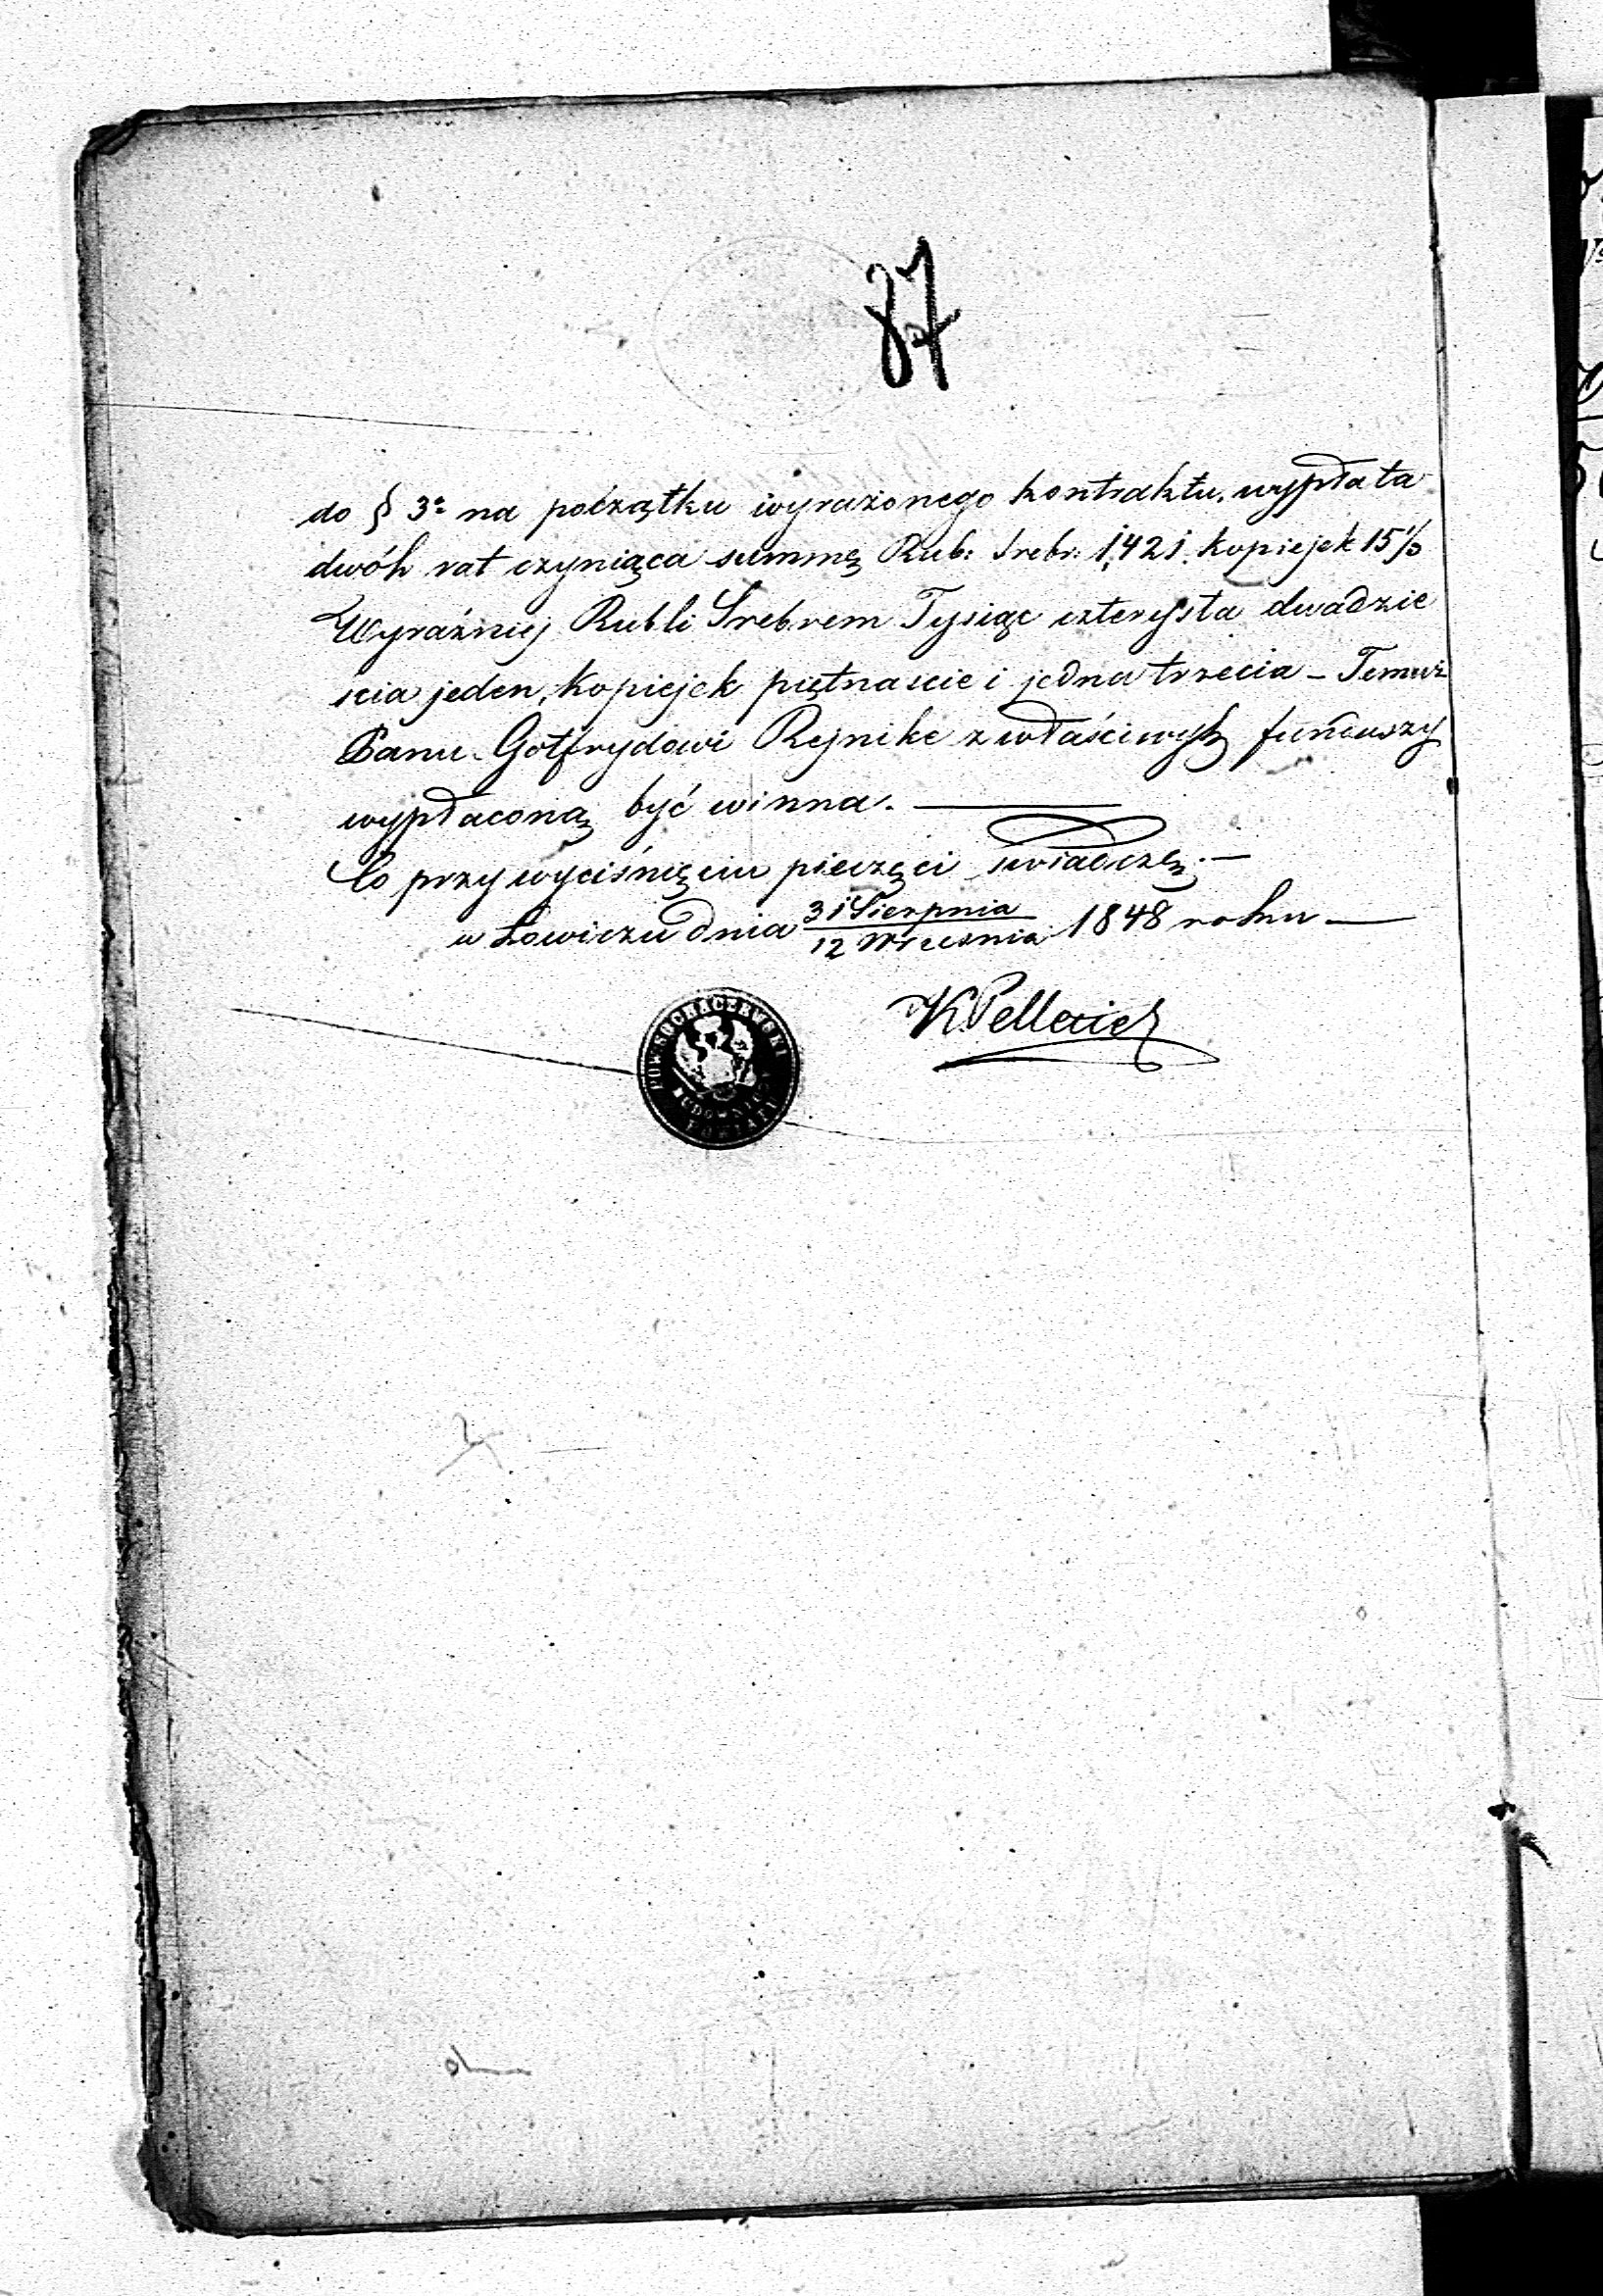 87
do § 3º na początku wyrażonego kontraktu, wypłata
dwóh rat czyniąca summę Rub: Srebr: 1,421. kopiejek 15⅓
Wyraźniej Rubli Srebrem Tysiąc czterysta dwadzie
ścia jeden, kopiejek piętnascie i jedna trzecia – Temuż
Panu Gotfrydowi Rejnike z właściwych funduszy
wypłaconą być winna. —
Co przy wyciśnięciu pieczęci świadczę. —
w Łowiczu dnia 31 Sierpnia / 12 Września 1848 roku —
POW. SOCHACZEWSKI